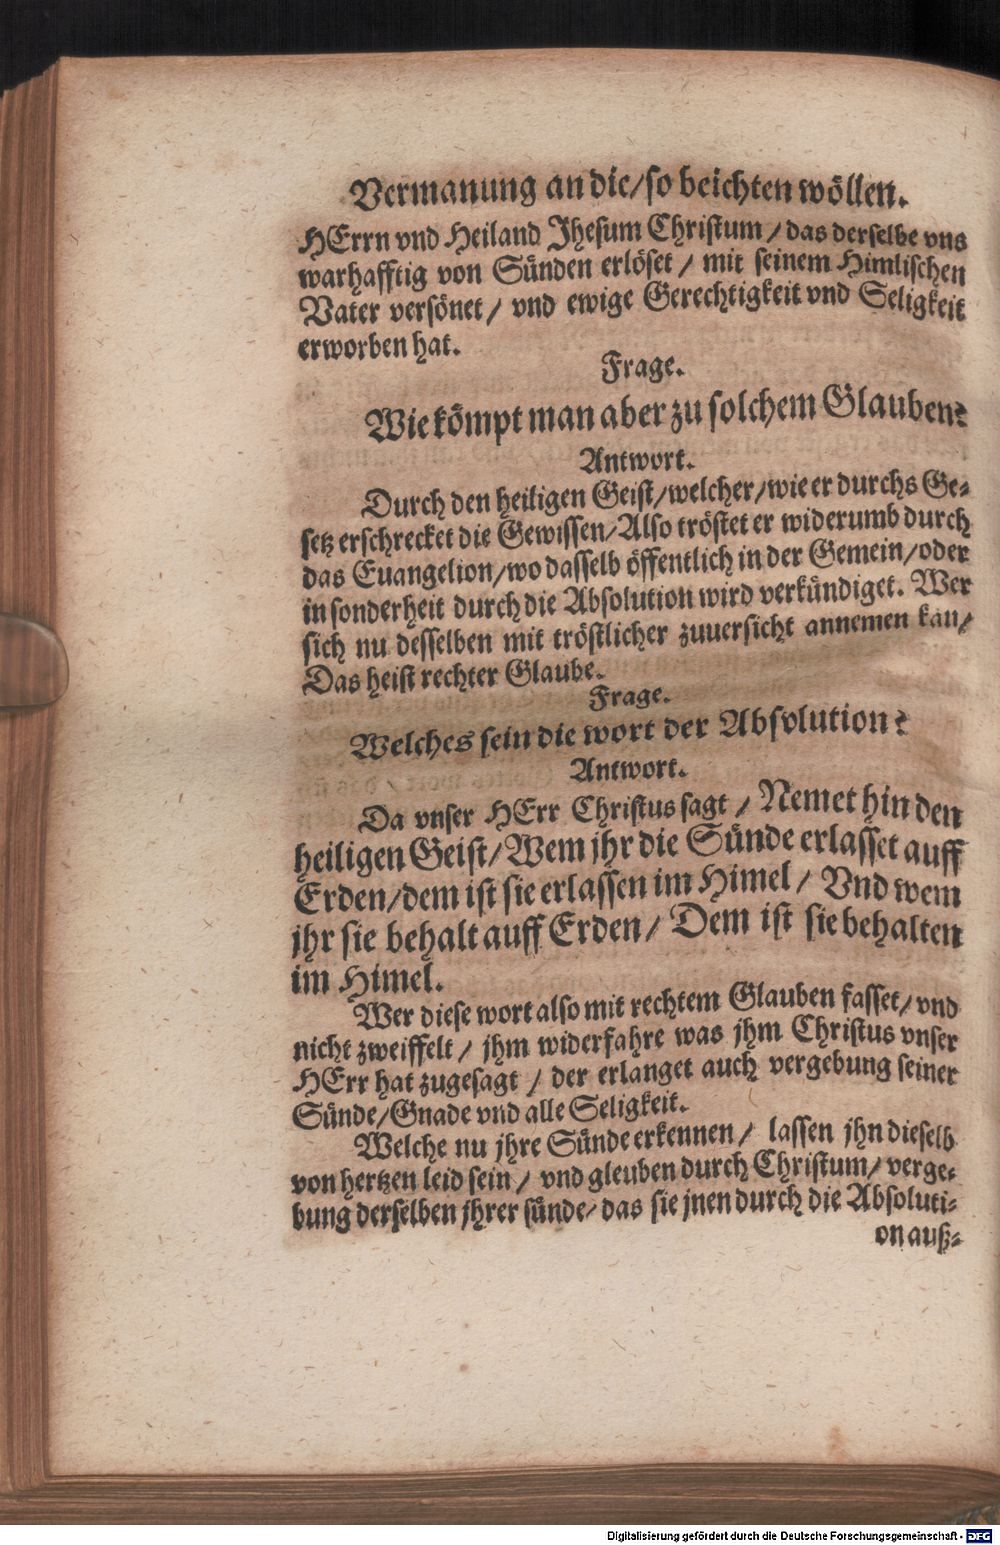 Vermanung an die/so beichten wöllen.
HErrn vnd Heiland Jhesum Christum / das derselbe vns
warhafftig von Sünden erlöset / mit seinem Himlischen
Vater versönet / vnd ewige Gerechtigkeit vnd Seligkeit
erworben hat.
Frage.
Wie kömpt man aber zu solchem Glauben?
Antwort.
Durch den heiligen Geist/welcher/wie er durchs Ge-
setz erschrecket die Gewissen/Also tröstet er widerumb durch
das Euangelion/wo dasselb öffentlich in der Gemein/oder
in sonderheit durch die Absolution wird verkündiget. Wer
sich nu desselben mit tröstlicher zuuersicht annemen kan/
Das heist rechter Glaube.
Frage.
Welches sein die wort der Absolution?
Antwort.
Da vnser HErr Christus sagt / Nemet hin den
heiligen Geist/Wem jhr die Sünde erlasset auff
Erden/dem ist sie erlassen im Himel / Vnd wem
jhr sie behalt auff Erden / Dem ist sie behalten
im Himel.
Wer diese wort also mit rechtem Glauben fasset/vnd
nicht zweiffelt / jhm widerfahre was jhm Christus vnser
HErr hat zugesagt / der erlanget auch vergebung seiner
Sünde/Gnade vnd alle Seligkeit.
Welche nu jhre Sünde erkennen / lassen jhn dieselb
von hertzen leid sein / vnd gleuben durch Christum/verge-
bung derselben jhrer sünde/das sie jnen durch die Absoluti-
on auß-
Digitalisierung gefördert durch die Deutsche Forschungsgemeinschaft - DFG